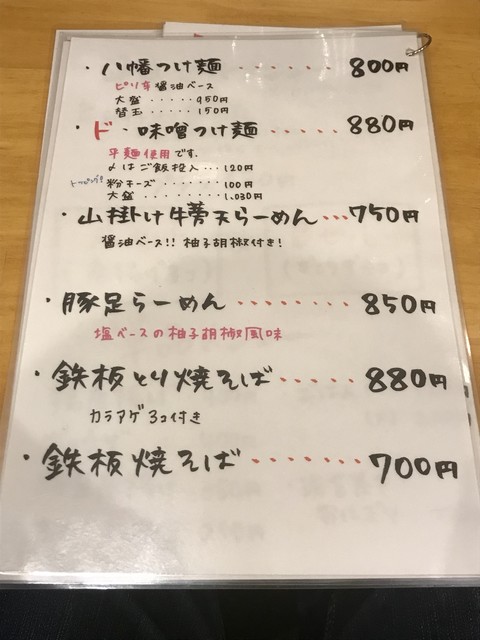 ・八幡つけ麺 ・・・・・・ 800円
ピリ辛醤油ベース
大盛 ・・・・・ 950円
替玉 ・・・・・ 150円
・ド・味噌つけ麺 ・・・・・ 880円
平麺使用です.
〆はご飯投入 ・・・ 120円
トッピング! 粉チーズ ・・・・・・・ 100円
大盛 ・・・・・・・・ 1,030円
・山掛け牛蒡天らーめん ・・・ 750円
醤油ベース!! 柚子胡椒付き!
・豚足らーめん ・・・・・・・・ 850円
塩ベースの柚子胡椒風味
・鉄板とり焼そば ・・・・・ 880円
カラアゲ3コ付き
・鉄板焼そば ・・・・・・・ 700円